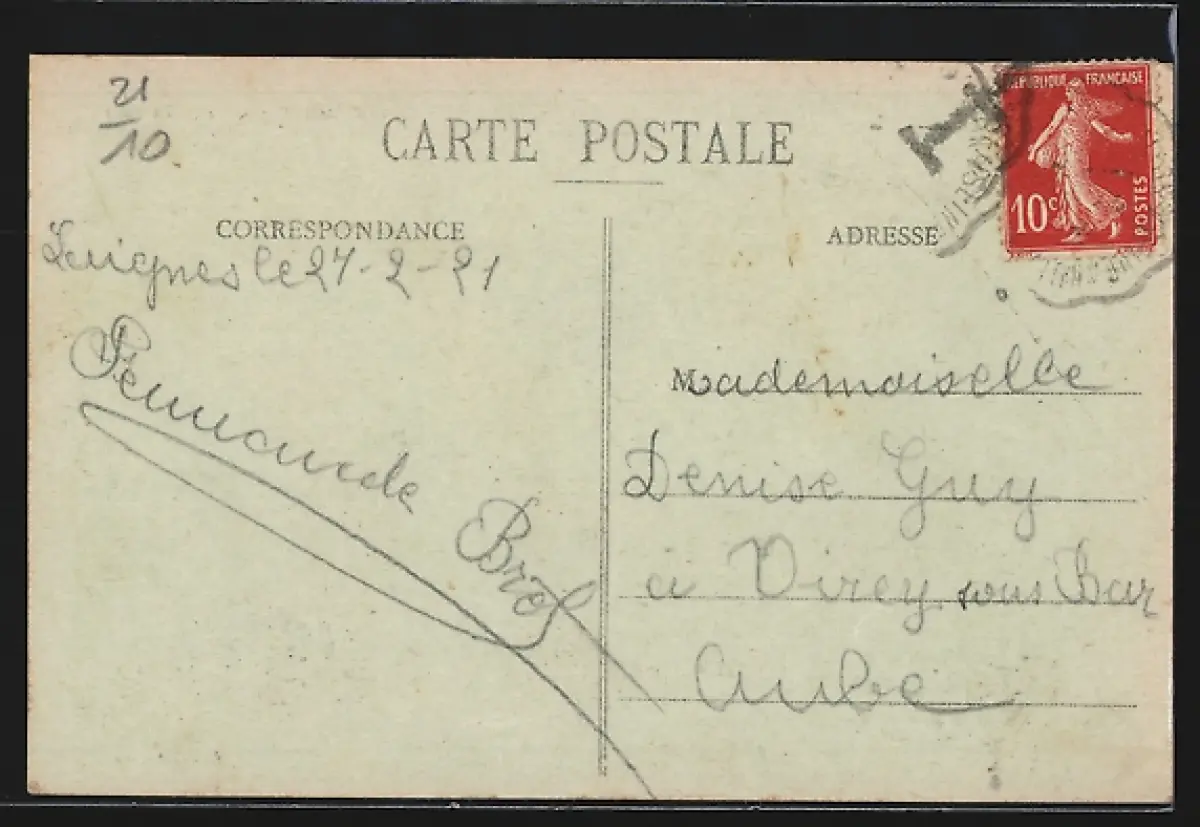 21
10
CARTE POSTALE
REPUBLIQUE FRANÇAISE
10c POSTES
T
CORRESPONDANCE
ADRESSE
le 27-2-21
Mademoiselle
Denise Guy
à Virey sous Bar
Aube
Fernande